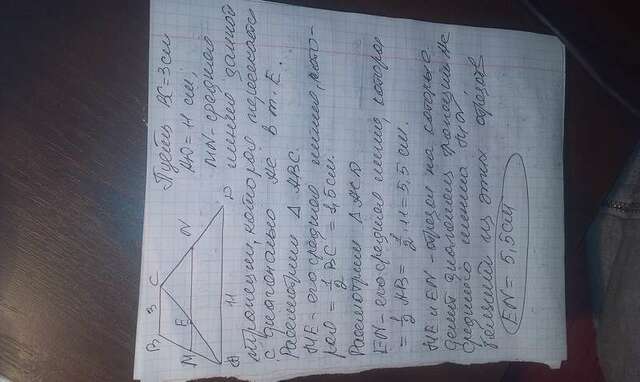 B 3 C
M E N
A 11 D
Пусть BC=3см
AD = 11 см,
MN-средняя
линия данной
трапеции, которая пересекает
с диагональю AC в т. E.
Рассмотрим Δ ABC.
ME - его средняя линия, кото-
рая = 1/2 BC = 1,5см.
Рассмотрим Δ ACD
EN - его средняя линия, которая
= 1/2 AB = 1/2 · 11 = 5,5 см.
ME и EN - отрезки на которые
делит диагональ трапеции AC
среднюю линию
Больший из этих отрезков
EN = 5,5см